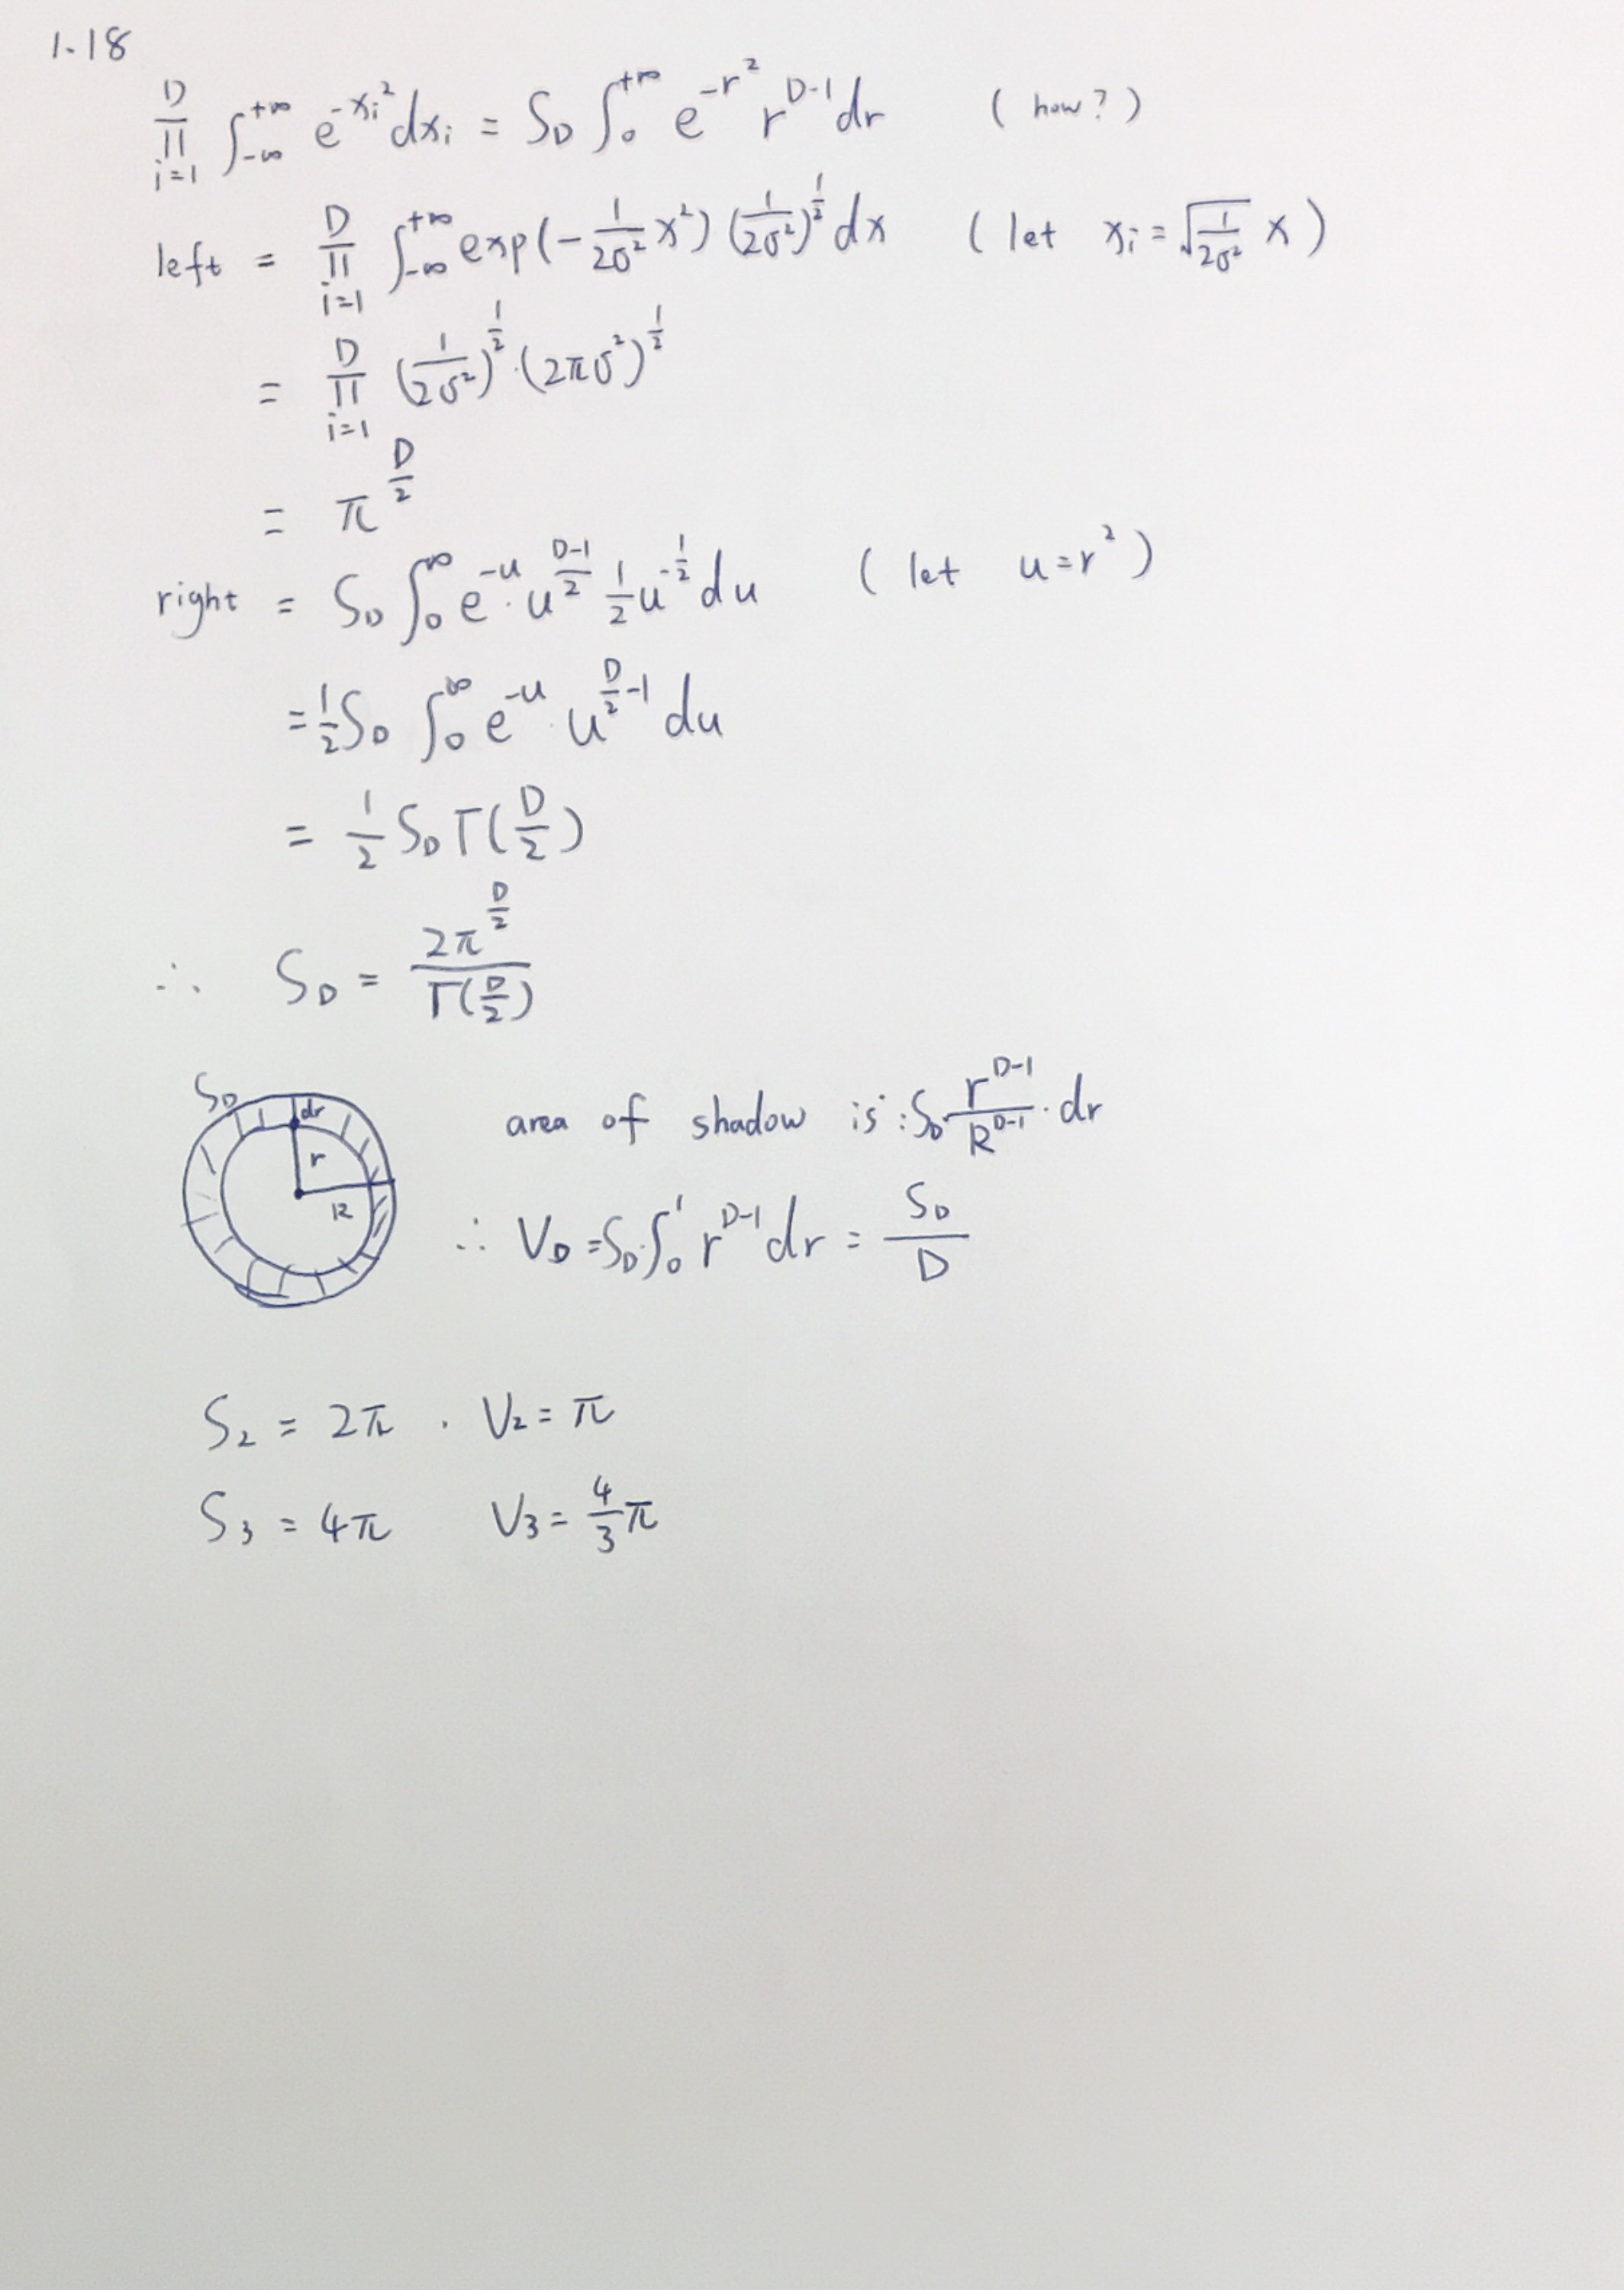 1.18
∏_{i=1}^{D} ∫_{-∞}^{+∞} e^{-x_i^2} dx_i = S_D ∫_0^{+∞} e^{-r^2} r^{D-1} dr (how?)
left = ∏_{i=1}^{D} ∫_{-∞}^{+∞} exp(-\frac{1}{2σ^2} x^2) (\frac{1}{2σ^2})^{\frac{1}{2}} dx (let x_i = \sqrt{\frac{1}{2σ^2}} x)
= ∏_{i=1}^{D} (\frac{1}{2σ^2})^{\frac{1}{2}} · (2πσ^2)^{\frac{1}{2}}
= π^{\frac{D}{2}}
right = S_D ∫_0^∞ e^{-u} · u^{\frac{D-1}{2}} \frac{1}{2} u^{-\frac{1}{2}} du (let u = r^2)
= \frac{1}{2} S_D ∫_0^∞ e^{-u} · u^{\frac{D}{2}-1} du
= \frac{1}{2} S_D Γ(\frac{D}{2})
∴ S_D = \frac{2π^{\frac{D}{2}}}{Γ(\frac{D}{2})}
S_D
dr
r
R
area of shadow is: S_D · \frac{r^{D-1}}{R^{D-1}} · dr
∴ V_D = S_D · ∫_0^1 r^{D-1} dr = \frac{S_D}{D}
S_2 = 2π . V_2 = π
S_3 = 4π V_3 = \frac{4}{3}π